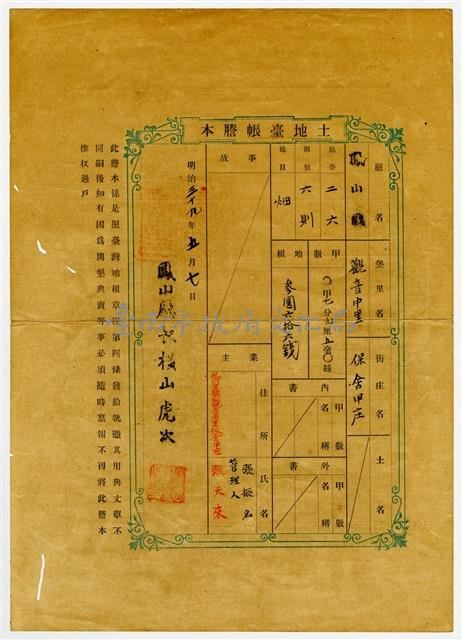 土地臺帳謄本
廳名
鳳山廳
堡里名
觀音中里
街庄名
保舍甲庄
土名
地番
二六
則別
六則
地目
畑
甲數
〇甲七分九厘五毫〇絲
地租
參圓六拾六錢
內書
甲數
名稱
外書
甲數
名稱
事故
業主
住所
氏名
張振名
管理人
張天來
明治三十九年五月七日
鳳山廳長橫山虎次
此謄本係是照臺灣地租章程第四條發給就憑其用與丈單不
同嗣後如有因爲開墾典賣等事必須隨時稟報不得將此謄本
推收過戶